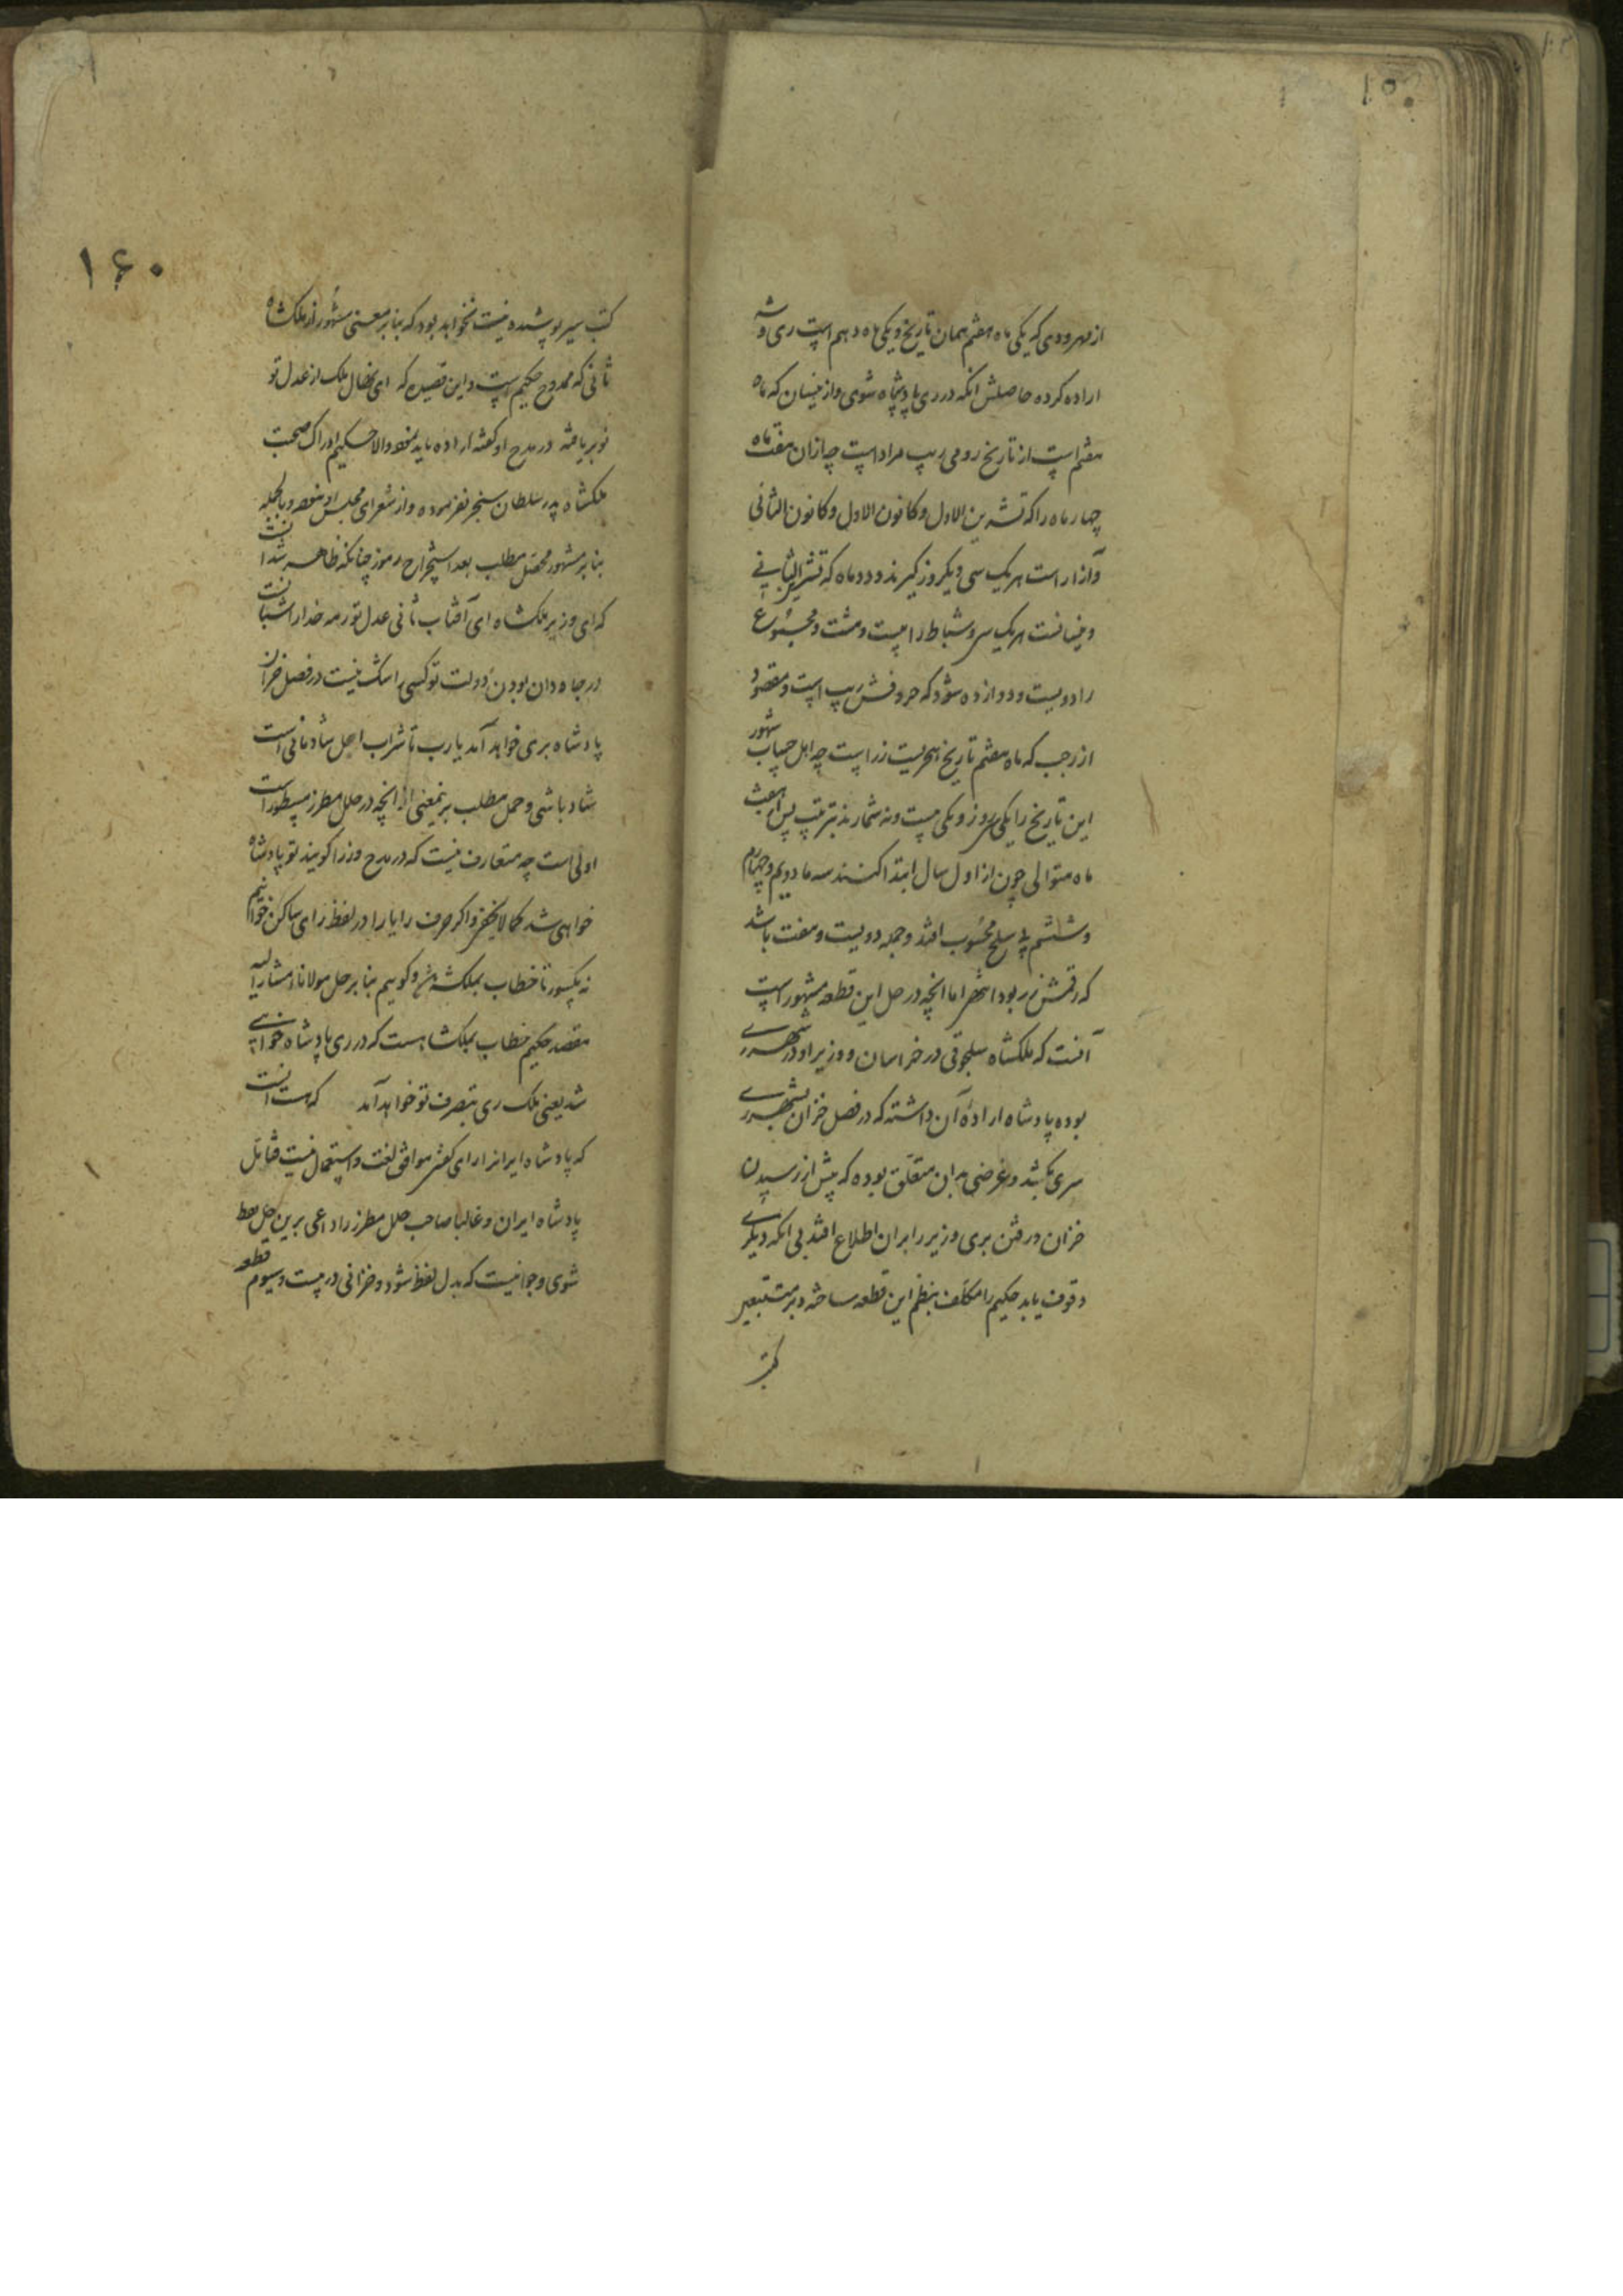 ۱۵۰
از مهر و دی که یکی ماه هفتم همان تاریخ و یکی ماه دهم است ری و شه
اراده کرده حاصلش آنکه در ری پادشاه شوی و از نیسان که ماه
هفتم است از تاریخ رومی ریب مراد است چه ازان هفت ماه
چهار ماه را که تشرین الاول و کانون الاول و کانون الثانی
و آزار است هر یک سی و یکروز گیرند و دو ماه که تشرین الثانی
و نیسانست هر یک سی و شباط را بیست و هشت و مجموع
را دویست و دوازده شود که حروفش ریب است و مقصود
از رجب که ماه هفتم تاریخ هجریست زر است چه اهل حساب شهور
این تاریخ را یکی سی روز و یکی بیست و نه شمارند بترتیب پس هفت
ماه متوالی چون از اول سال ابتدا کنند سه ماه دویم و چهارم
و ششم به سلخ محسوب افتد و جمله دویست و هفت باشد
که رقمش زر بود انتهی اما آنچه در حل این قطعه مشهور است
آنست که ملکشاه سلجوقی در خراسان و وزیر او در شهر ری
بوده پادشاه اراده آن داشته که در فصل خزان بشهر ری
سری بکشد و غرضی بدان متعلق بوده که پیش از رسیدن
خزان و رفتن بری وزیر را بران اطلاع افتد بی آنکه دیگری
وقوف یابد حکیم را مکلف بنظم این قطعه ساخته و بر متتبعین
کتب
۱۶۰
کتب سیر پوشیده نیست نخواهد بود که بنا بر معنی مشهور از ملکشاه
ثانی که ممدوح حکیم است و این قصیده که ای نهال ملک از عدل تو
نوبر یافته در مدح او گفته اراده باید نمود والا حکیم ادراک صحبت
ملکشاه پدر سلطان سنجر نفرموده و از شعرای مجلس او نبوده و بالجمله
بنا بر مشهور محصل مطلب بعد استخراج رموز چنانکه ظاهر شد اینست
که ای وزیر ملکشاه ای آفتاب ثانی عدل تو رمه خدا را شبانست
در جاودان بودن دولت تو کسی را شک نیست در فصل خزان
پادشاه بری خواهد آمد یا رب تا شراب اصل شادمانی است
شاد باشی و حمل مطلب بر نمعنی از آنچه در حلل مطرز مسطور است
اولی است چه متعارف نیست که در مدح وزرا گویند تو پادشاه
خواهی شد کما لا یخفی و اگر حرف را یا را در لفظ رای ساکن خوانیم
نه مکسور تا خطاب بملکشه شود گوییم بنا بر حل مولانا مشار الیه
مقصد حکیم خطاب بملکشاهست که در ری پادشاه خواهی
شد یعنی ملک ری بتصرف تو خواهد آمد که هست اینست
که پادشاه ایرانرا رای گفتن موافق لغت و استعمال نیست فتامل
پادشاه ایران و غالبا صاحب حلل مطرز را داعی برین حل لفظ
شوی و جوانیست که بدل لفظ شود و خزانی در بیت سیوم قطعه